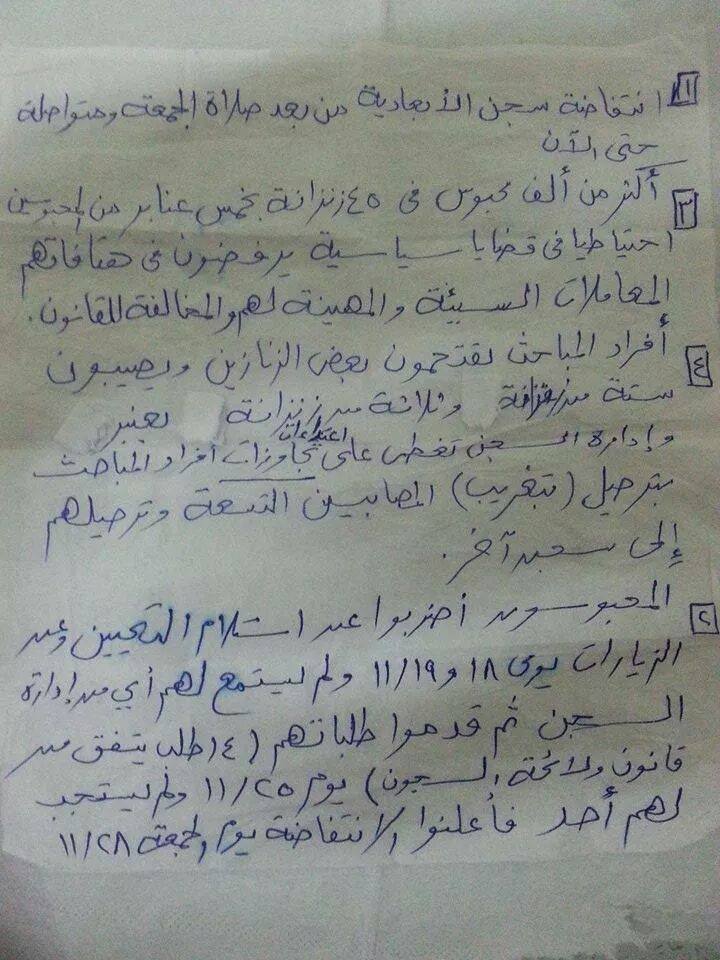 ١ انتفاضة سجن الأبعادية من بعد صلاة الجمعة ومتواصلة
حتى الآن
٣ أكثر من ألف محبوس فى ٤٥ زنزانة بخمس عنابر من المحبوسين
احتياطيا فى قضايا سياسية يرفضون فى هتافاتهم
المعاملات السيئة والمهينة لهم والمخالفة للقانون.
٤ أفراد المباحث يقتحمون بعض الزنازين ويصيبون
ستة من زنزانة وثلاثة من زنزانة بعنبر
وإدارة السجن تغطى على اعتداءات تجاوزات أفراد المباحث
بترحيل (تغريب) المصابين التسعة وترحيلهم
إلى سجن آخر.
٢ المحبوسون أضربوا عن استلام التعيين وعن
الزيارات يومى ١٨ و ١١/١٩ ولم يستمع لهم أي من إدارة
السجن ثم قدموا طلباتهم (١٤ طلب يتفق من
قانون ولائحة السجون) يوم ١١/٢٥ ولم يستجب
لهم أحد فأعلنوا الانتفاضة يوم الجمعة ١١/٢٨